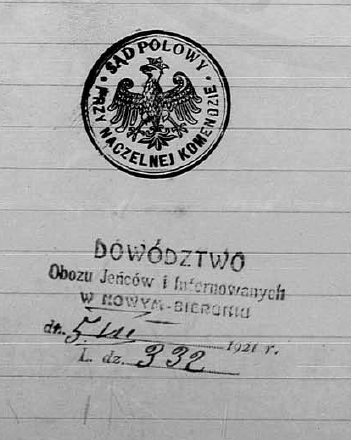 · SĄD POLOWY ·
PRZY NACZELNEJ KOMENDZIE
DOWÓDZTWO
Obozu Jeńców i Internowanych
w NOWYM-BIERUNIU
dn. 5. VII 1921 r.
L. dz. 332